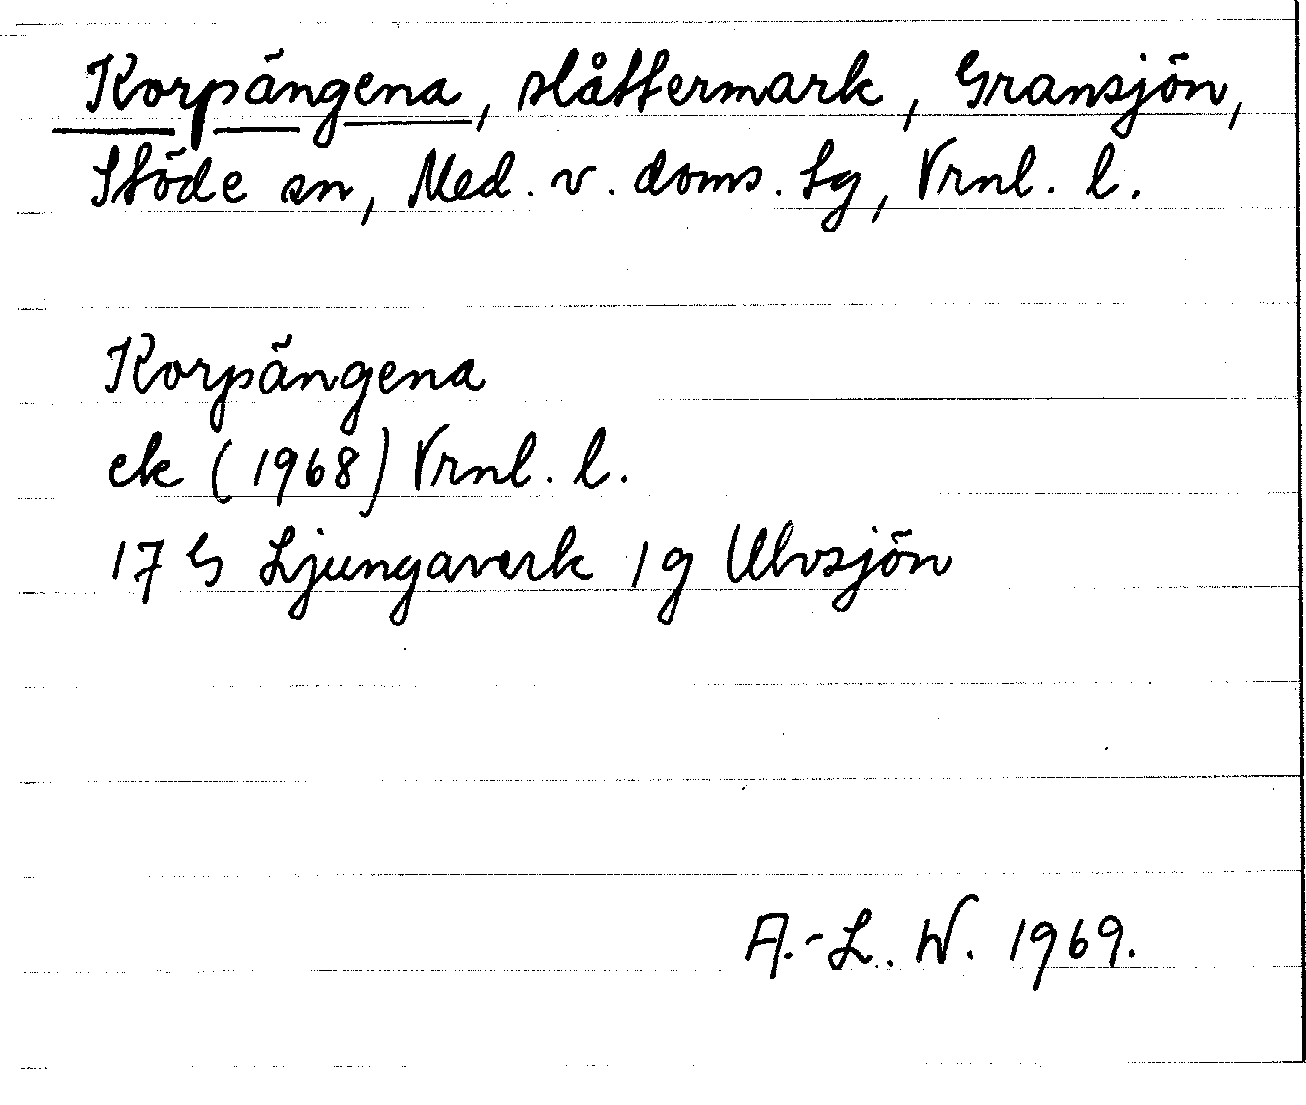 Korpängena, slåttermark, Gransjön,
Stöde sn, Med. v. doms. tg, Vrnl. l.
Korpängena
ek (1968) Vrnl. l.
17 G Ljungaverk 1 g Ulvsjön
A.-L. W. 1969.